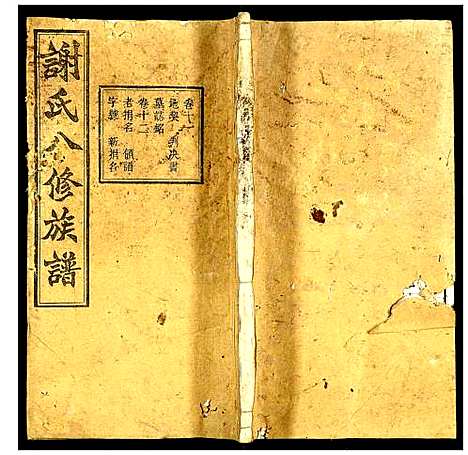 謝氏八修族譜
卷十一
地契 判决書
墓誌銘
卷十二
老捐名 領譜
字號 新捐名